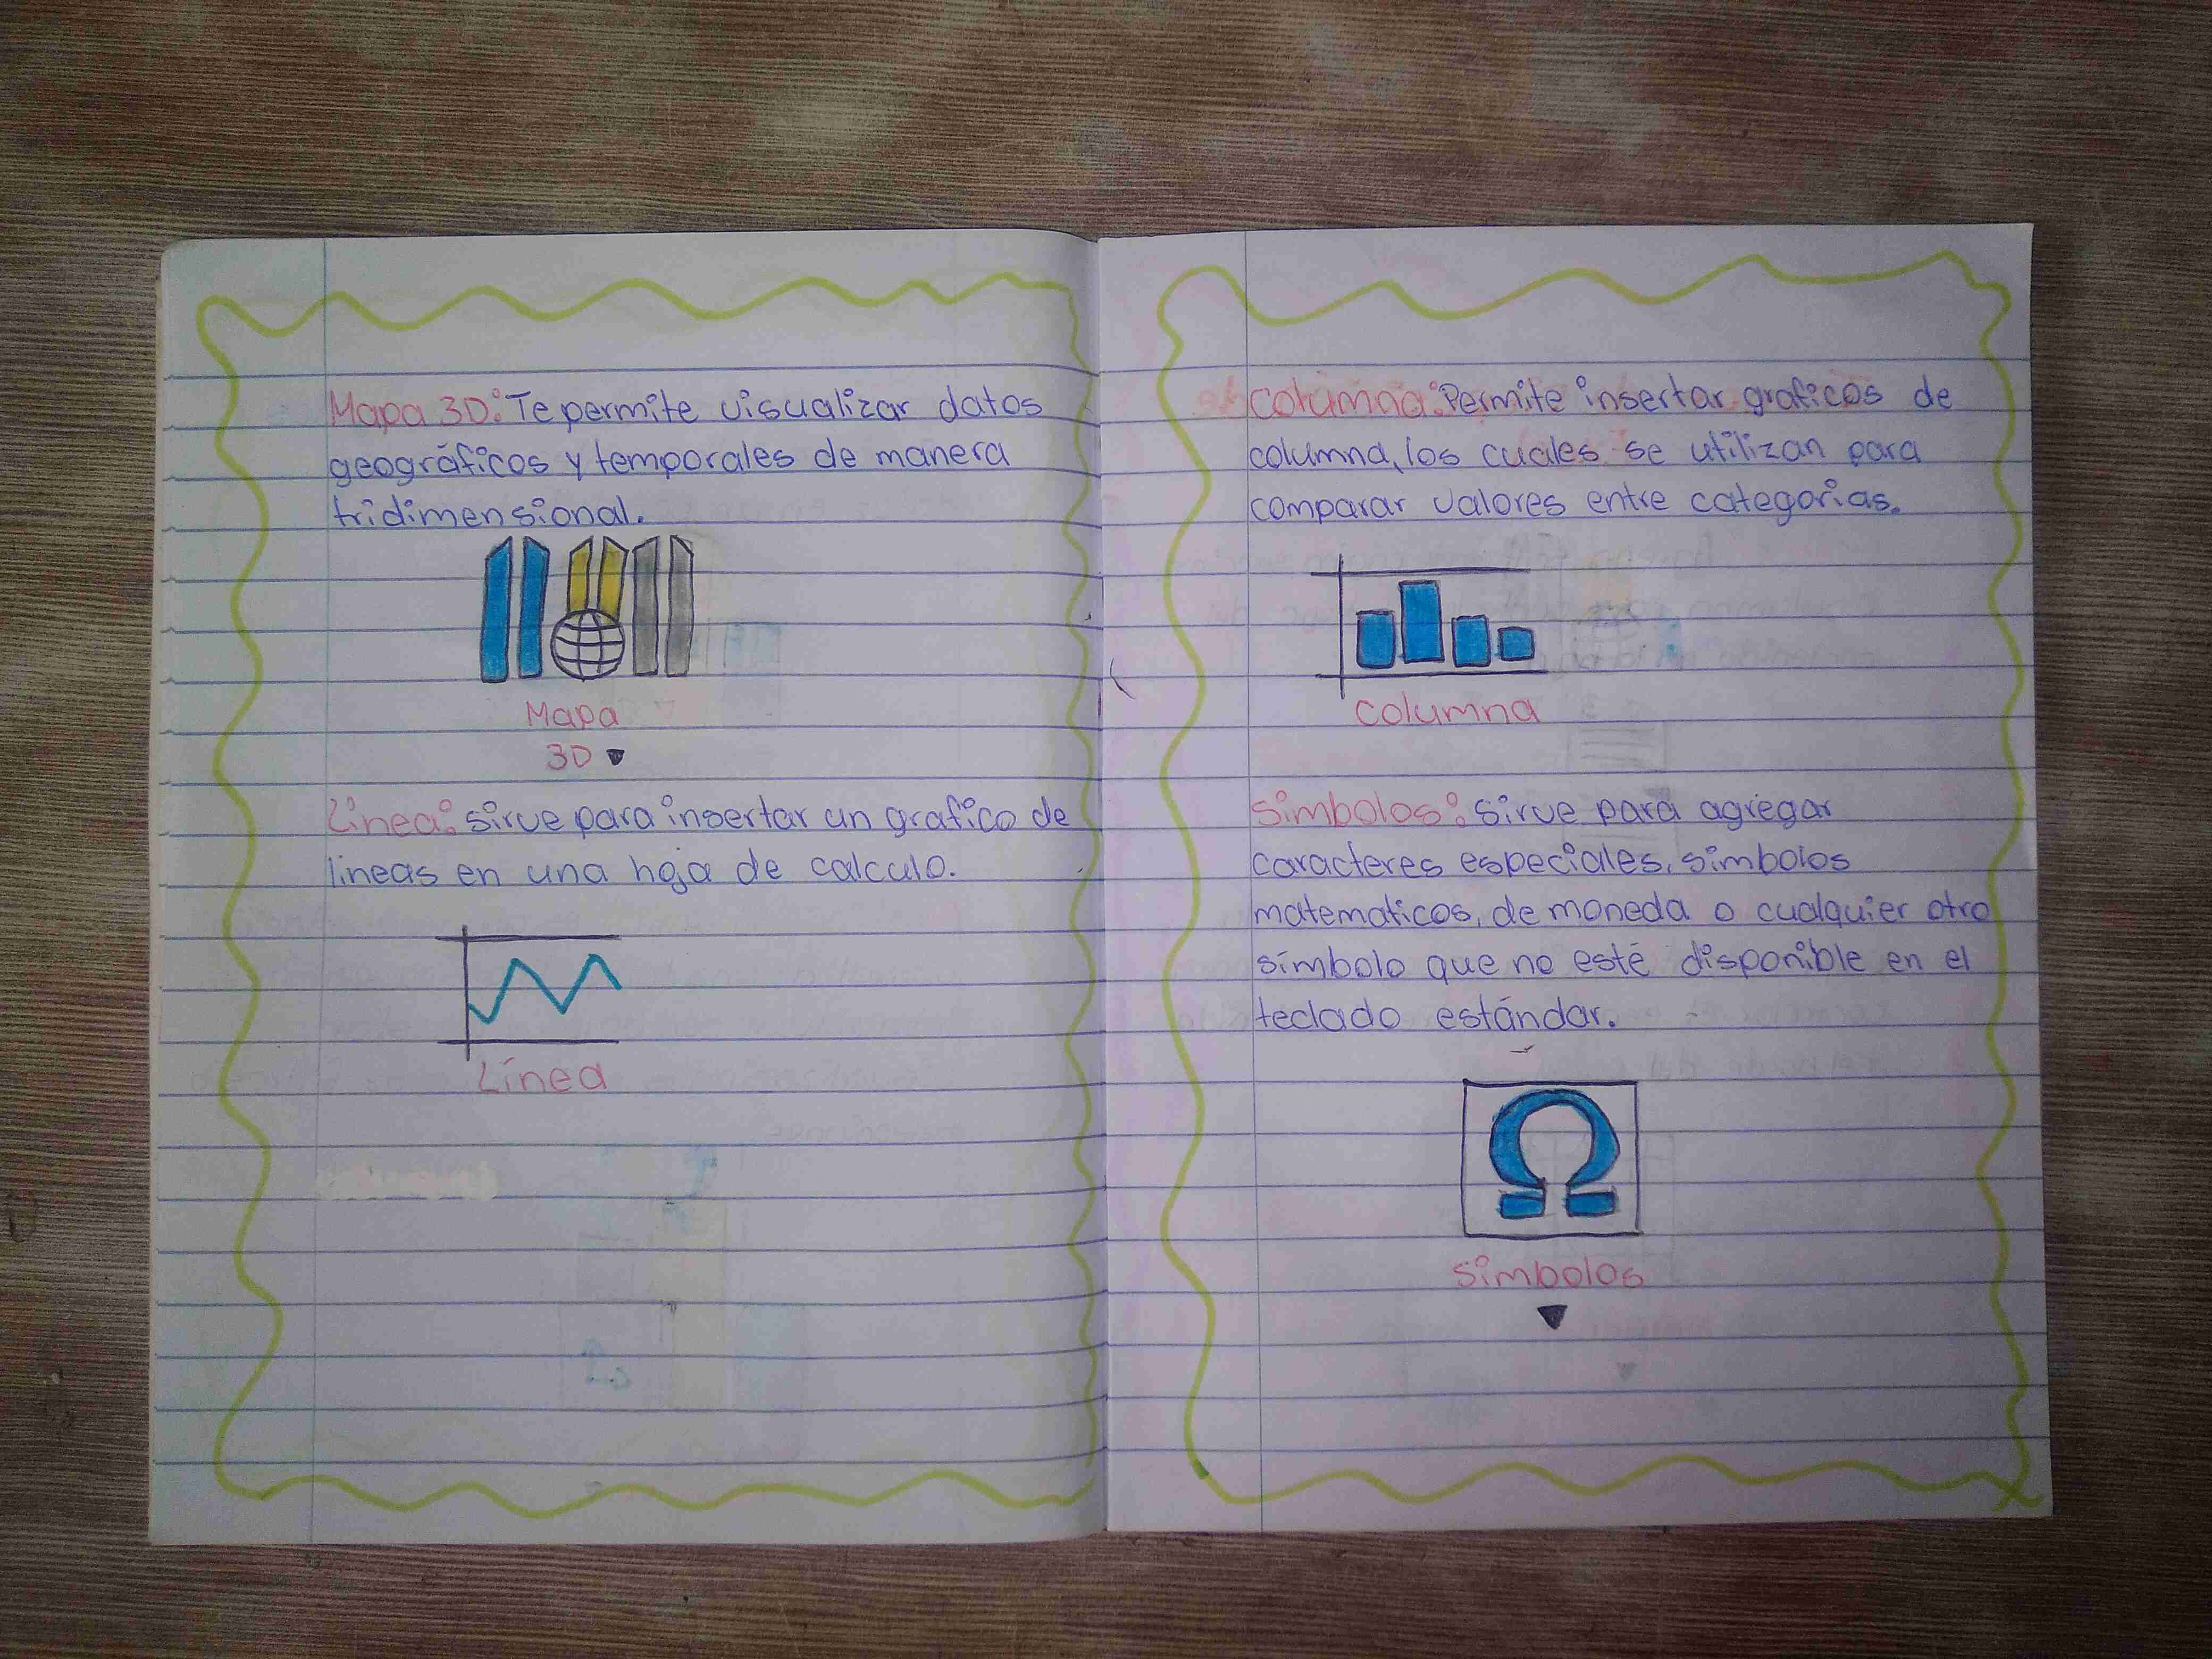 Mapa 3D: Te permite visualizar datos
geográficos y temporales de manera
tridimensional.
Mapa
3D
Línea: sirve para insertar un grafico de
lineas en una hoja de calculo.
Línea
Columna: Permite insertar graficos de
columna, los cuales se utilizan para
comparar valores entre categorias.
Columna
Simbolos: sirve para agregar
caracteres especiales, simbolos
matematicos, de moneda o cualquier otro
símbolo que no esté disponible en el
teclado estándar.
Ω
Simbolos